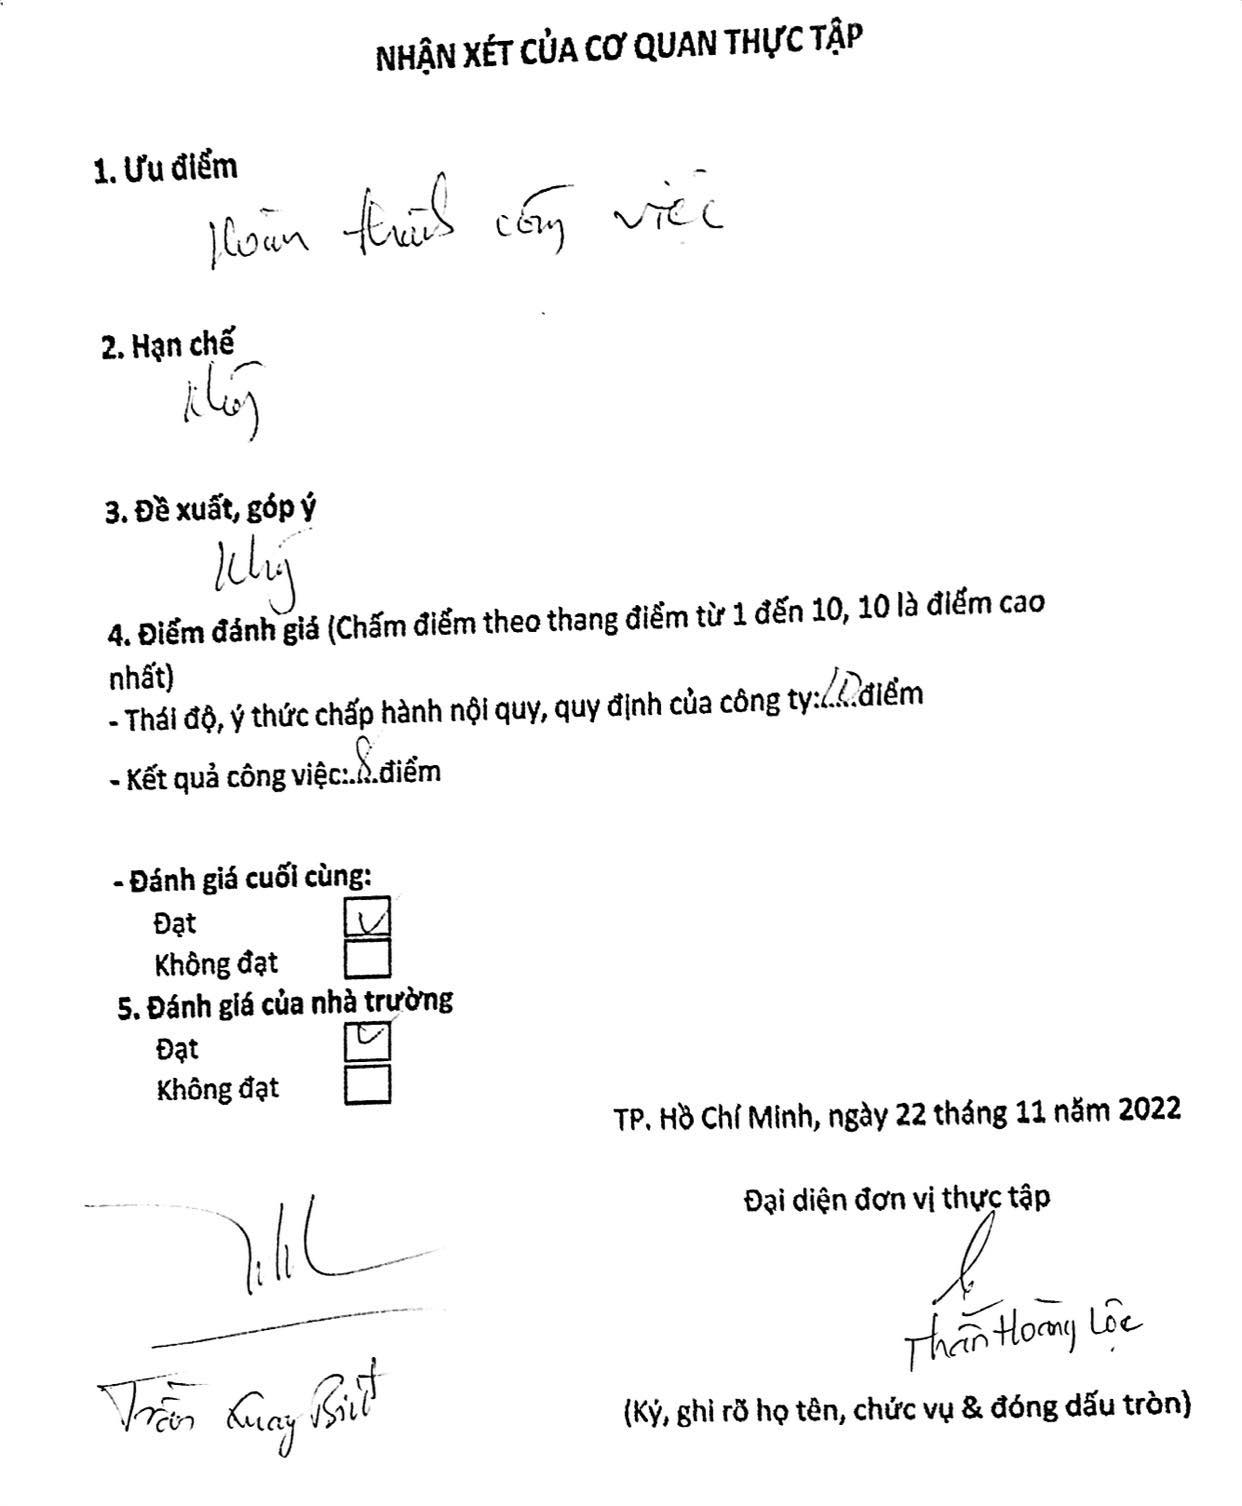 NHẬN XÉT CỦA CƠ QUAN THỰC TẬP
1. Ưu điểm
Hoàn thành công việc
2. Hạn chế
Không
3. Đề xuất, góp ý
Không
4. Điểm đánh giá (Chấm điểm theo thang điểm từ 1 đến 10, 10 là điểm cao
nhất)
- Thái độ, ý thức chấp hành nội quy, quy định của công ty:10điểm
- Kết quả công việc:.8.điểm
- Đánh giá cuối cùng:
Đạt
Không đạt
5. Đánh giá của nhà trường
Đạt
Không đạt
TP. Hồ Chí Minh, ngày 22 tháng 11 năm 2022
Đại diện đơn vị thực tập
Hoàng Lộc
Trần
(Ký, ghi rõ họ tên, chức vụ & đóng dấu tròn)